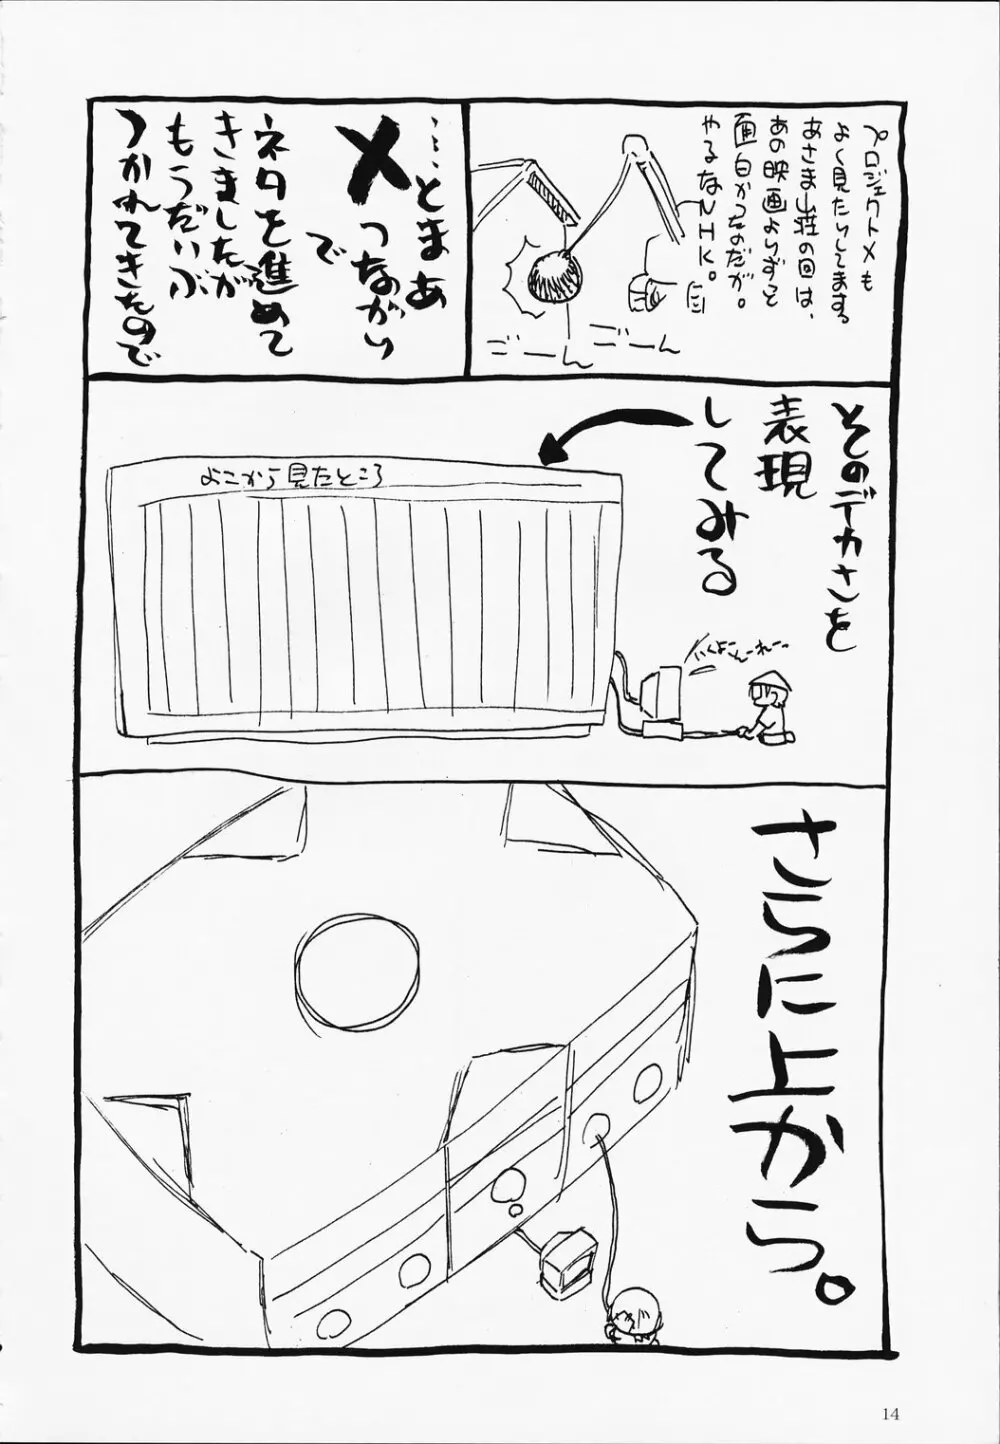 プロジェクトXも
よく見たりしてますする
あさま山荘の回は、
あの映画よりずっと
面白かったのだが。
やるなNHK。
ごーん
ごーん
……とまあ
Xつながり
で
ネタを進めて
きましたが
もうだいぶ
つかれてきたので
そのデカさを
表現
してみる
よこから見たところ
さらに上から。
14